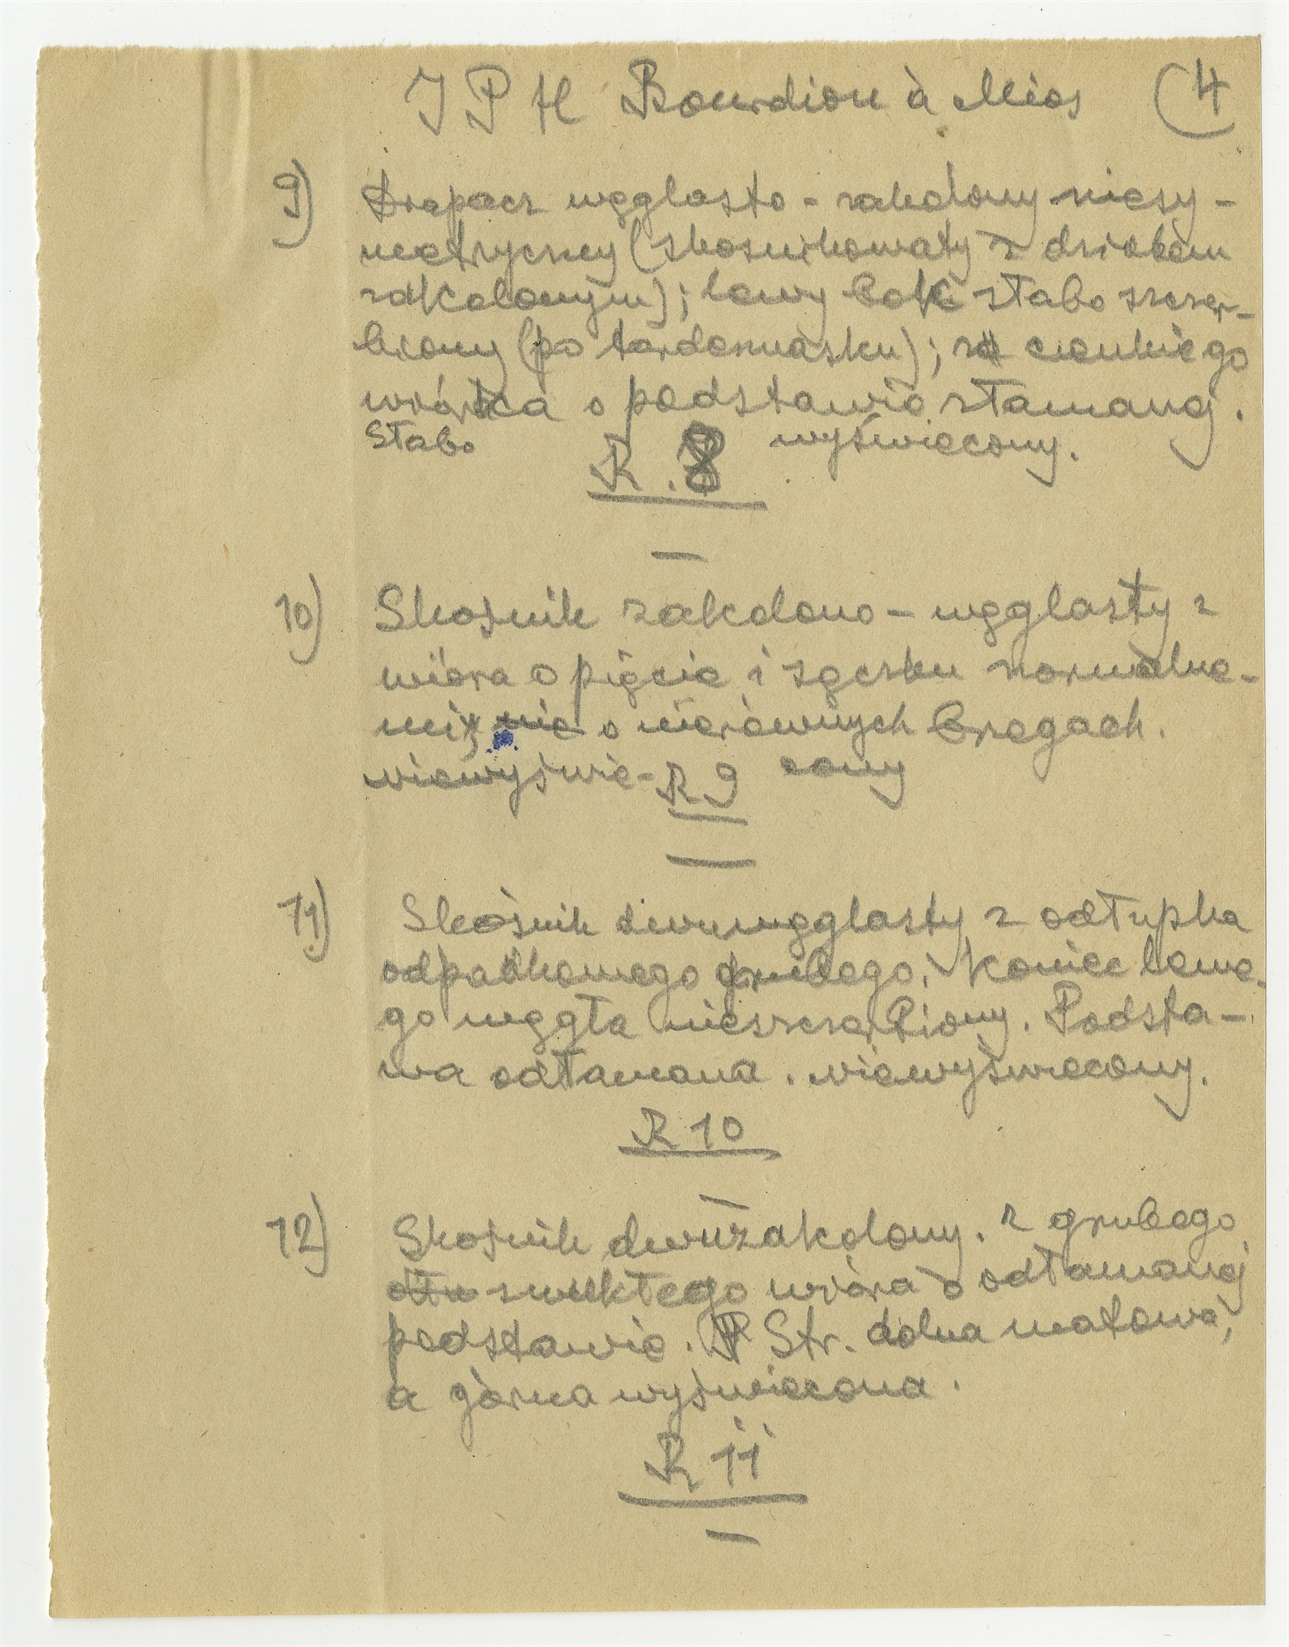 I P H Bourdiou à Mios (4
9) Drapacz węglasto - zakolony niesy-
metryczny (skośnikowaty z dziobem
zakolonym); lewy bok słabo szczer-
biony (po tardenuasku); z cienkiego
wiórka o podstawie złamanej.
Słabo wyświecony.
R. 8
10) Skośnik zakolono - węglasty z
wióra o pięcie i sęczku normalne-
mi, nie o nierównych brzegach.
niewyświe- cony
R 9
11) Skośnik dwuwęglasty z odłupka
odpadkowego grubego, koniec lewe-
go węgła nieszczerbiony. Podsta-
wa odłamana. niewyświecony.
R 10
12) Skośnik dwuzakolony. z grubego
odłu zwykłego wióra o odłamanej
podstawie. Str. dolna matowa,
a górna wyświecona.
R 11